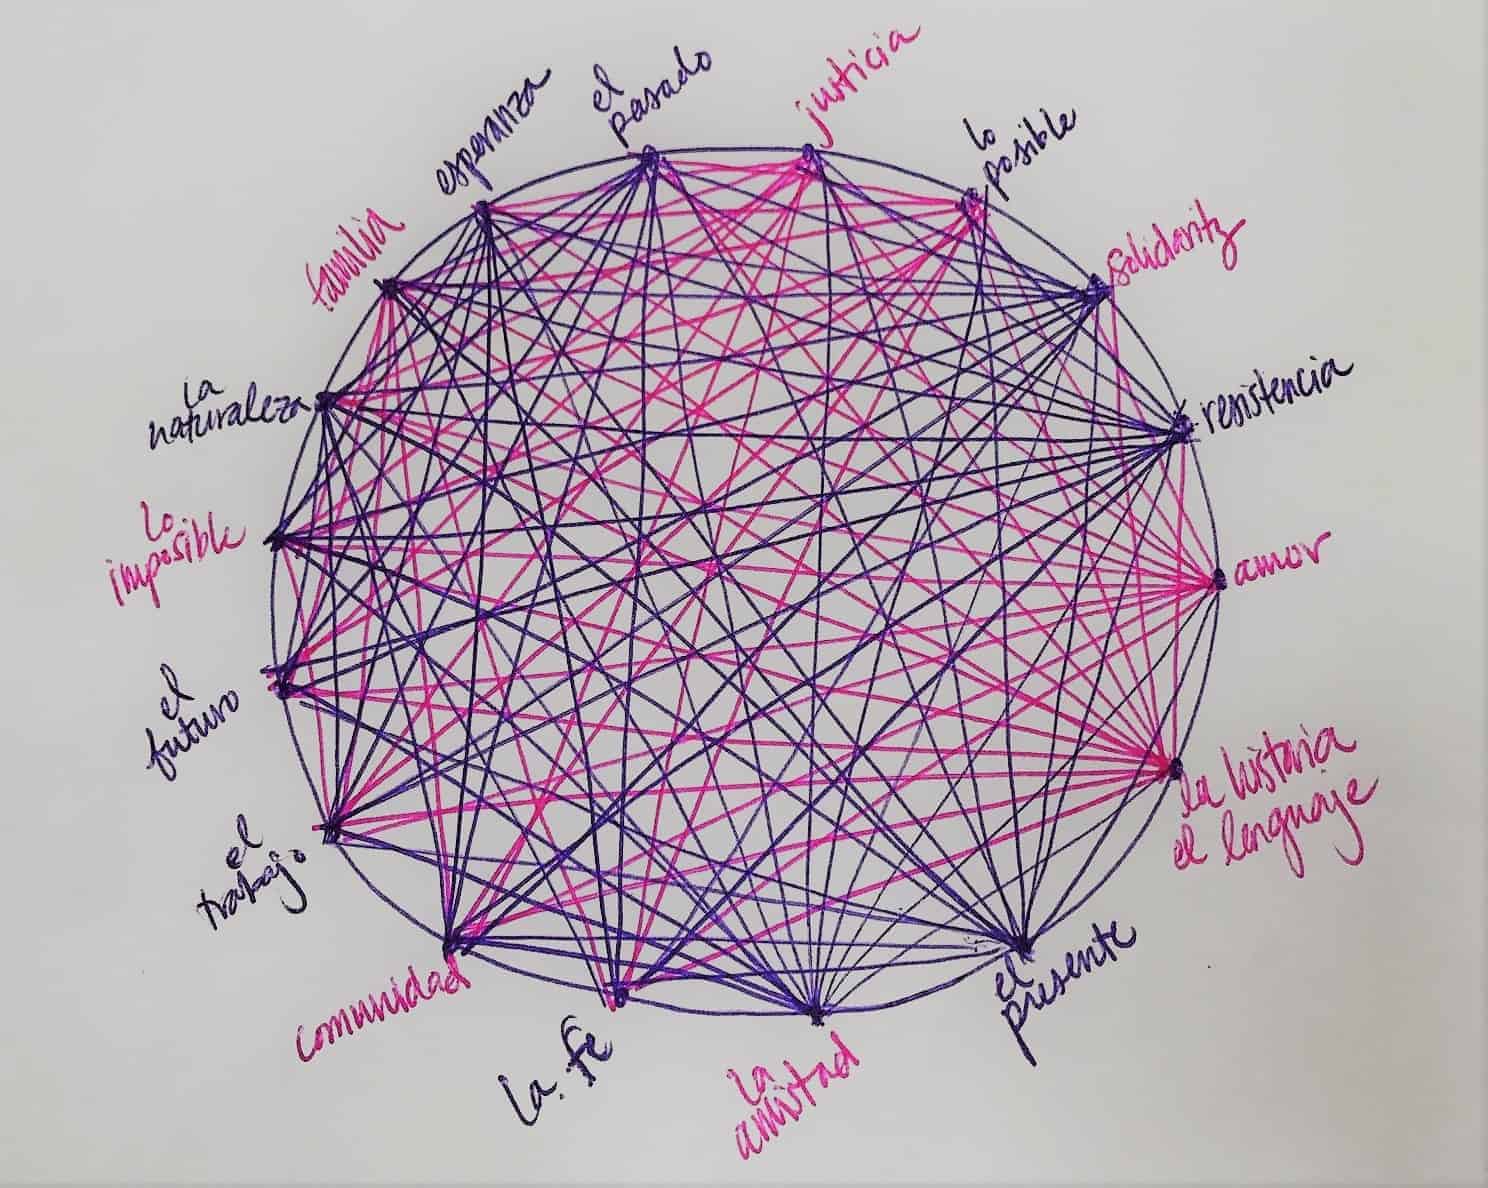 el
pasado
justicia
lo
posible
solidarity
resistencia
amor
la historia
el lenguaje
el
presente
la
amistad
la fe
comunidad
el
trabajo
el
futuro
lo
imposible
la
naturaleza
familia
esperanza